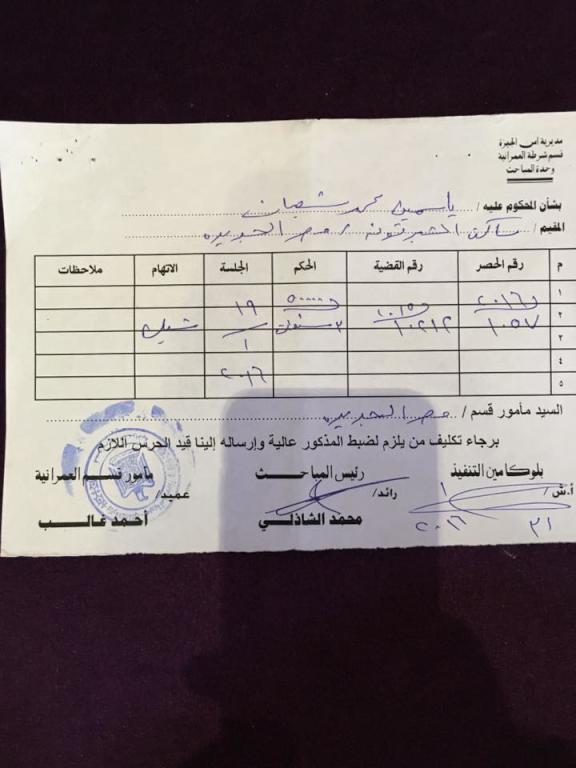 مديرية أمن الجيزة
قسم شرطة العمرانية
وحدة المباحث
بشأن المحكوم عليه / ياسمين محمد شعبان
المقيم / ساكن الشيراتونه / مصر الجديده
م رقم الحصر رقم القضية الحكم الجلسة الاتهام ملاحظات
١
٢ ٢٠١٦ ١٠٥٧ ١٠٢١٢ ٥٠٠٠٠ ٣ سنوات ١٩ / ١ / ٢٠١٦ شيك
٣
٤
٥
السيد مأمور قسم / مصر الجديده
برجاء تكليف من يلزم لضبط المذكور عالية وإرساله إلينا قيد الحرس اللازم
بلوكامين التنفيذ رئيس المباحث مأمور قسم العمرانية
أ.ش/ رائد/ عميد/
٣١ / ١ / ٢٠١٦ محمد الشاذلي أحمد غالب